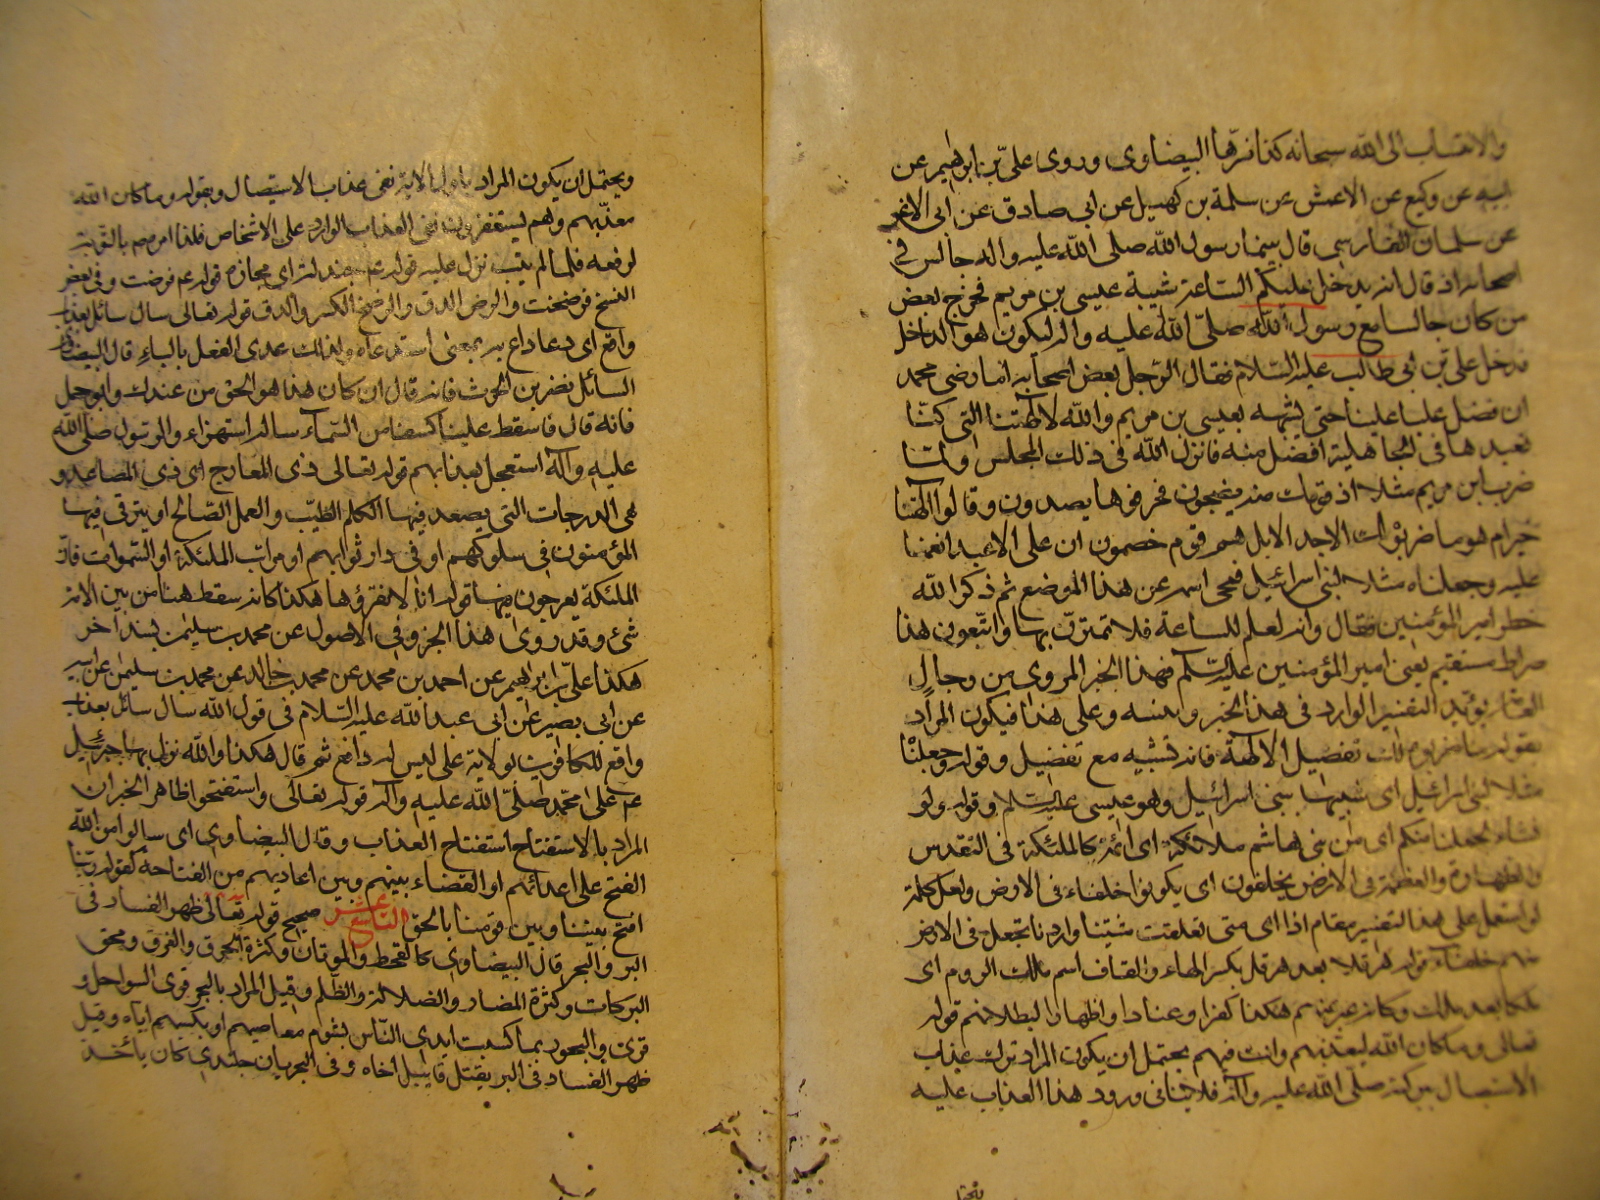 والانتساب الى الله سبحانه كذا فسرها البيضاوى وروى على بن ابرهيم عن
ابيه عن وكيع عن الاعمش عن سلمة بن كهيل عن ابى صادق عن ابى الاغر
عن سلمان الفارسى قال بينما رسول الله صلى الله عليه واله جالس فى
اصحابه اذ قال انه يدخل عليكم الساعة شبيه عيسى بن مريم فخرج بعض
من كان جالسا مع رسول الله صلى الله عليه واله ليكون هو الداخل
فدخل على بن ابى طالب عليه السلام فقال الرجل لبعض اصحابه اما رضى محمد
ان فضل عليا علينا حتى يشبهه بعيسى بن مريم والله لالهتنا التى كنا
نعبدها فى الجاهلية افضل منه فانزل الله فى ذلك المجلس ولما
ضرب ابن مريم مثلا اذ قومك منه يضجون فحرفوها يصدون وقالوا االهتنا
خير ام هو ما ضربوه لك الا جدلا بل هم قوم خصمون ان على الا عبد انعمنا
عليه وجعلناه مثلا لبنى اسرائيل فمحى اسمه عن هذا الموضع ثم ذكر الله
خطر امير المؤمنين فقال وانه لعلم للساعة فلا تمترن بها واتبعون هذا
صراط مستقيم يعنى امير المؤمنين عليه السلم فهذا الخبر المروى من رجال
العامة يؤيد التفسير الوارد فى هذا الخبر وعلى هذا فيكون المراد
بقوله ما ضربوه لك تفضيل الالهة فانه تشبيه مع تفضيل وقوله وجعلنا
مثلا لبنى اسرائيل اى شبيها ببنى اسرائيل وهو عيسى عليه السلم وقوله ولو
نشاء لجعلنا منكم اى من بنى هاشم ملائكة اى ائمة كالملئكة فى التقدس
والطهارة والعظمة فى الارض يخلفون اى يكونوا خلفاء فى الارض ولعل كلمة
لو استعمل على هذا التفسير مقام اذا اى متى تعلقت مشيتنا واردنا نجعل فى الارض
منهم خلفاء قوله هرقلا بعد هرقل بكسر الهاء والقاف اسم ملك الروم اى
ملكا بعد ملك وكانه عبر عنهم هكذا كفرا وعنادا واظهارا لبطلانهم قوله
تعالى وما كان الله ليعذبهم وانت فيهم يحتمل ان يكون المراد ترك عذاب
الاستيصال ببركته صلى الله عليه واله فلا ينافى ورود هذا العذاب عليه
ويحتمل ان يكون المراد باول الاية نفى عذاب الاستيصال وبقوله وما كان الله
معذبهم وهم يستغفرون نفى العذاب الوارد على الاشخاص فلذا امرهم بالتوبة
لرفعه فلما لم يتب نزل عليه قوله جندلة اى حجارة قوله فرضت وفى بعض
النسخ فرضخت والرض الدق والرضخ الكسر والدق قوله تعالى سال سائل بعذاب
واقع اى دعا داع به بمعنى استدعاه ولذلك عدى الفعل بالباء قال البيضاوى
السائل نضر بن الحرث فانه قال ان كان هذا هو الحق من عندك وابو جهل
فانه قال فاسقط علينا كسفا من السماء ساله استهزاء والرسول صلى الله
عليه وآله استعجل بعذابهم قوله تعالى ذى المعارج اى ذى المصاعد و
هى الدرجات التى يصعد فيها الكلم الطيب والعمل الصالح او يترقى فيها
المؤمنون فى سلوكهم او فى دار ثوابهم او مراتب الملئكة او السموات فان
الملئكة يعرجون فيها قوله انا لا نقرؤها هكذا كانه سقط هنا من بين الاية
شئ وقد روى هذا الجزو فى الاصول عن محمد بن سليمن بسند آخر
هكذا على بن ابرهيم عن احمد بن محمد عن محمد بن خالد عن محمد بن سليمن عن ابيه
عن ابى بصير عن ابى عبد الله عليه السلام فى قول الله سال سائل بعذاب
واقع للكافرين بولاية على ليس له دافع ثم قال هكذا والله نزل بها جبرئيل
ع على محمد صلى الله عليه وآله قوله تعالى واستفتحوا ظاهر الخبر ان
المراد بالاستفتاح استفتاح العذاب وقال البيضاوى اى سالوا من الله
الفتح على اعدائهم او القضاء بينهم وبين اعاديهم من الفتاحة كقوله ربنا
افتح بيننا وبين قومنا بالحق التاسع عشر صحيح قوله تعالى ظهر الفساد فى
البر والبحر قال البيضاوى كالقحط والموتان وكثرة الحرق والغرق ومحق
البركات وكثرة المضار والضلالة والظلم وقيل المراد بالبحر قرى السواحل و
قرى والبحور بما كسبت ايدى الناس بشوم معاصيهم او بكسبهم اياه وقيل
ظهر الفساد فى البر بقتل قابيل اخاه وفى البحر بان جلندى كان ياخذ